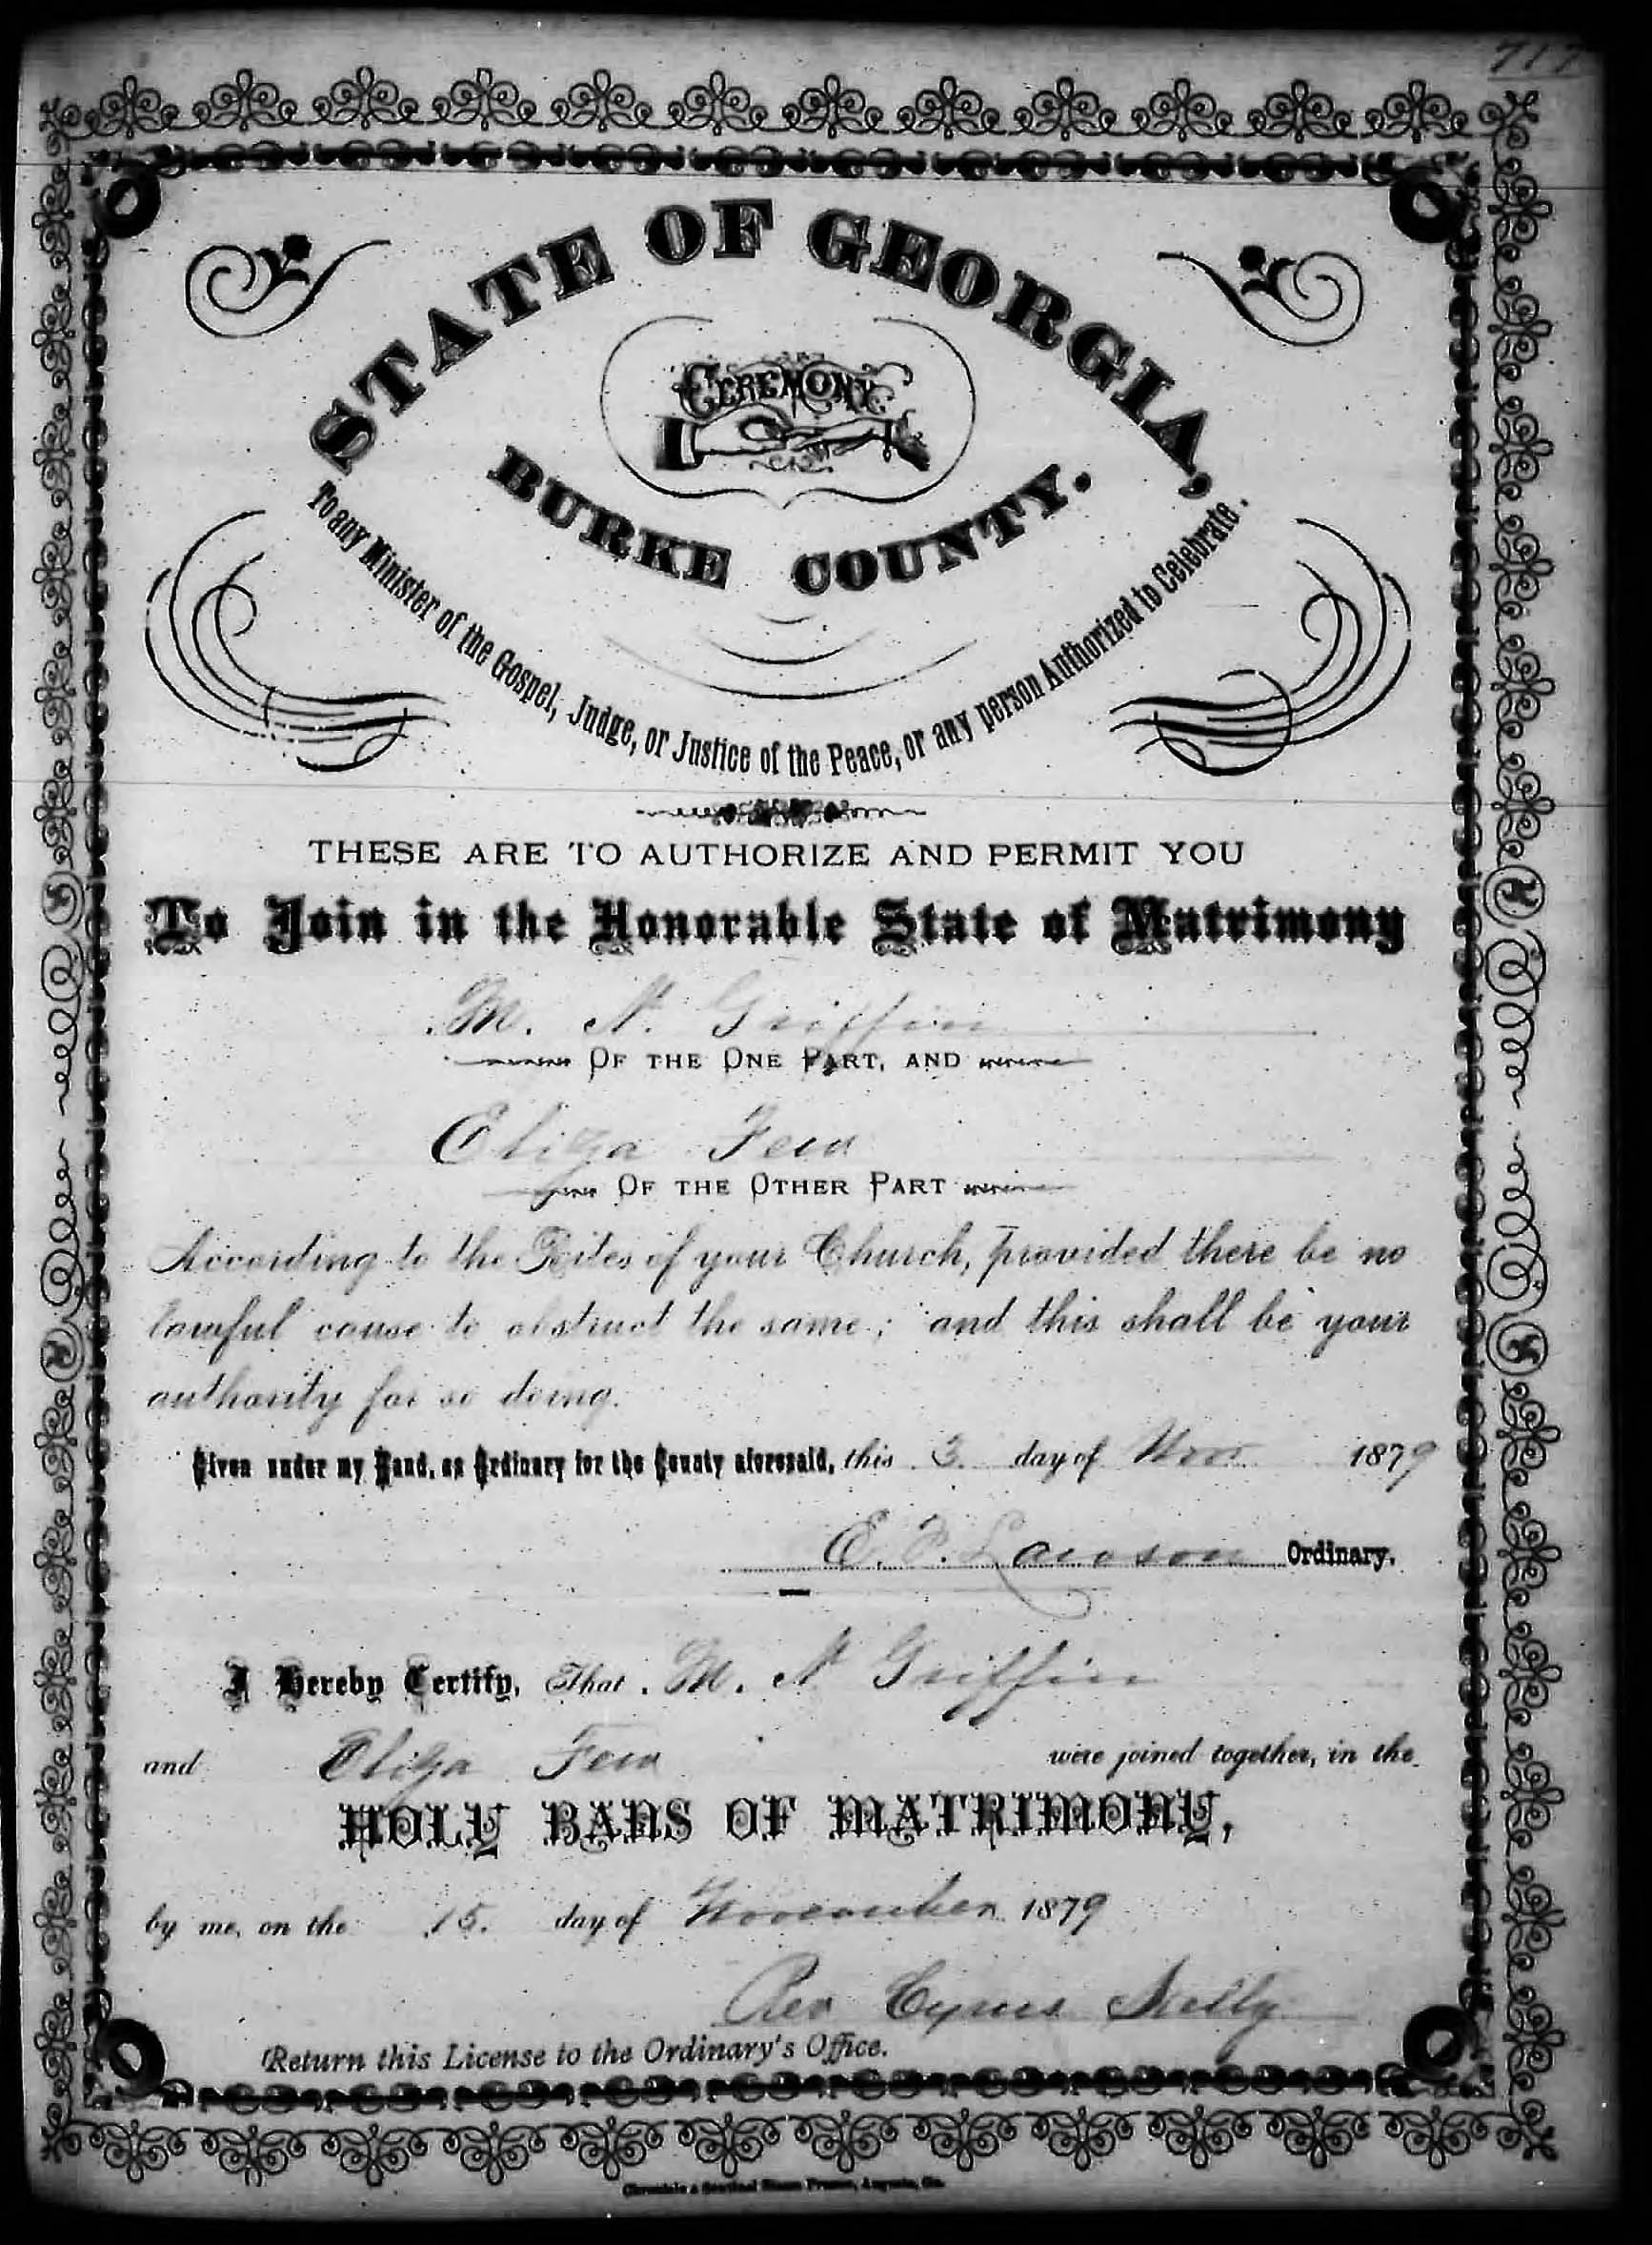 717
STATE OF GEORGIA,
CEREMONY
BURKE COUNTY.
To any Minister of the Gospel, Judge, or Justice of the Peace, or any person Authorized to Celebrate.
THESE ARE TO AUTHORIZE AND PERMIT YOU
To Join in the Honorable State of Matrimony
M. N. Griffin
OF THE ONE PART, AND
Eliza Few
OF THE OTHER PART
According to the Rites of your Church, provided there be no
lawful cause to obstruct the same; and this shall be your
authority for so doing.
Given under my Hand, as Ordinary for the County aforesaid, this 3. day of Nov 1879
E. P. Lawson Ordinary.
I Hereby Certify, That M. N Griffin
and Eliza Few were joined together, in the
HOLY BANS OF MATRIMONY,
by me, on the 15. day of November 1879
Rev Cyrus Skelly
Return this License to the Ordinary's Office.
Chronicle & Sentinel Steam Presses, Augusta, Ga.